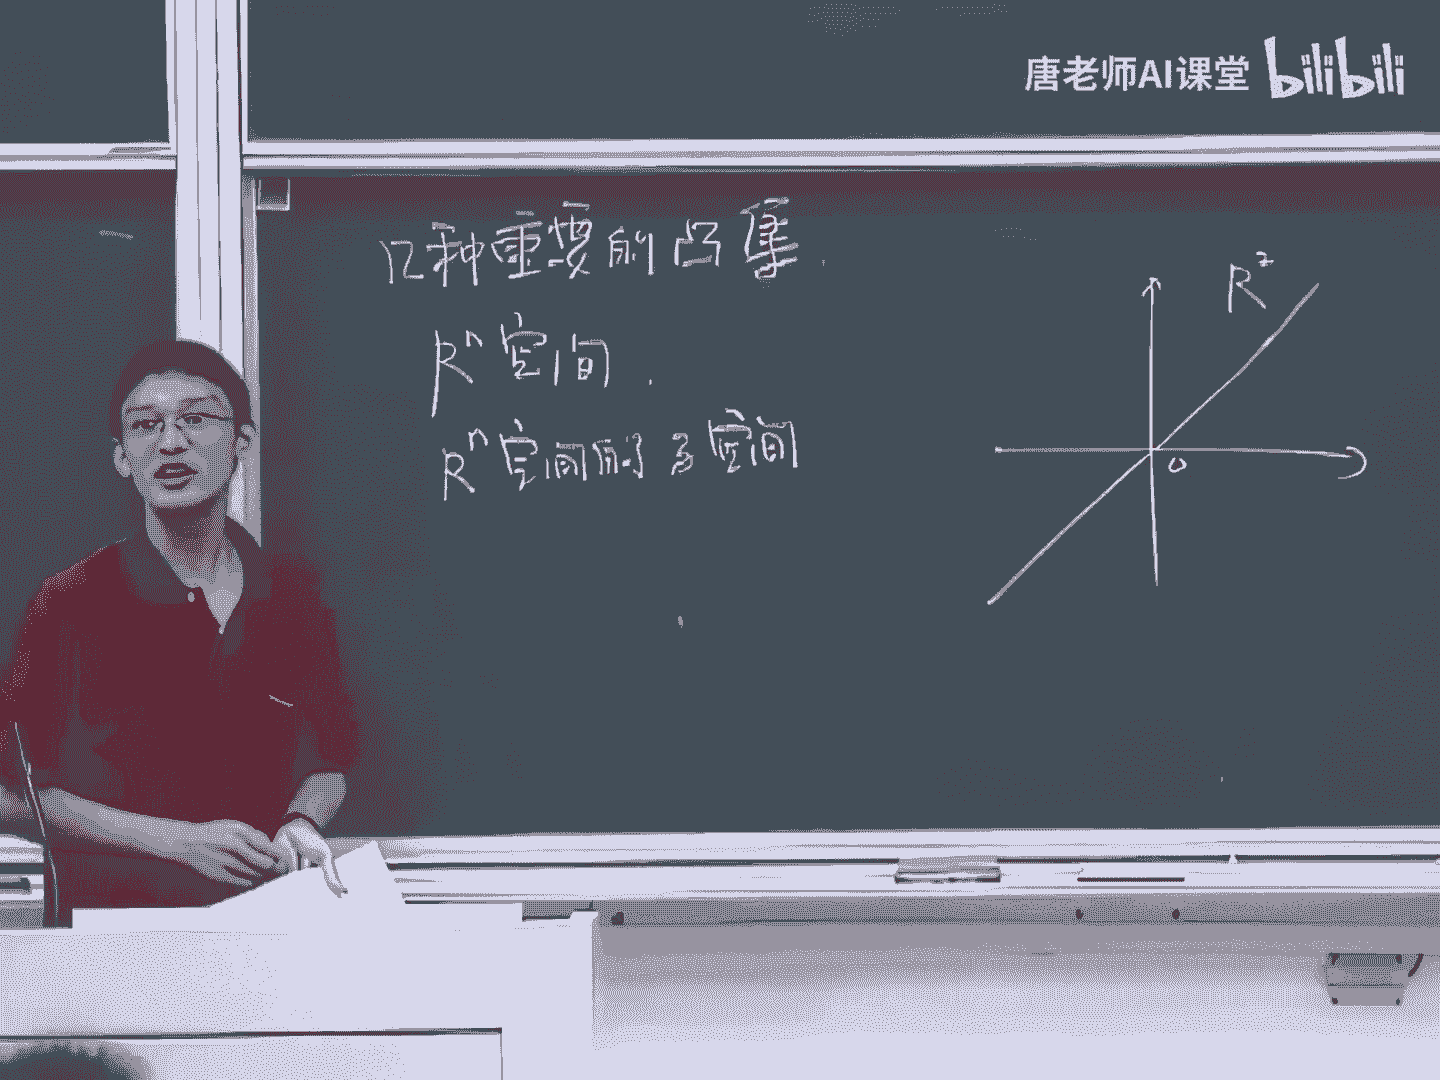 唐老师AI课堂 bilibili
几种重要的凸集.
Rⁿ空间.
Rⁿ空间的子空间
R²
O